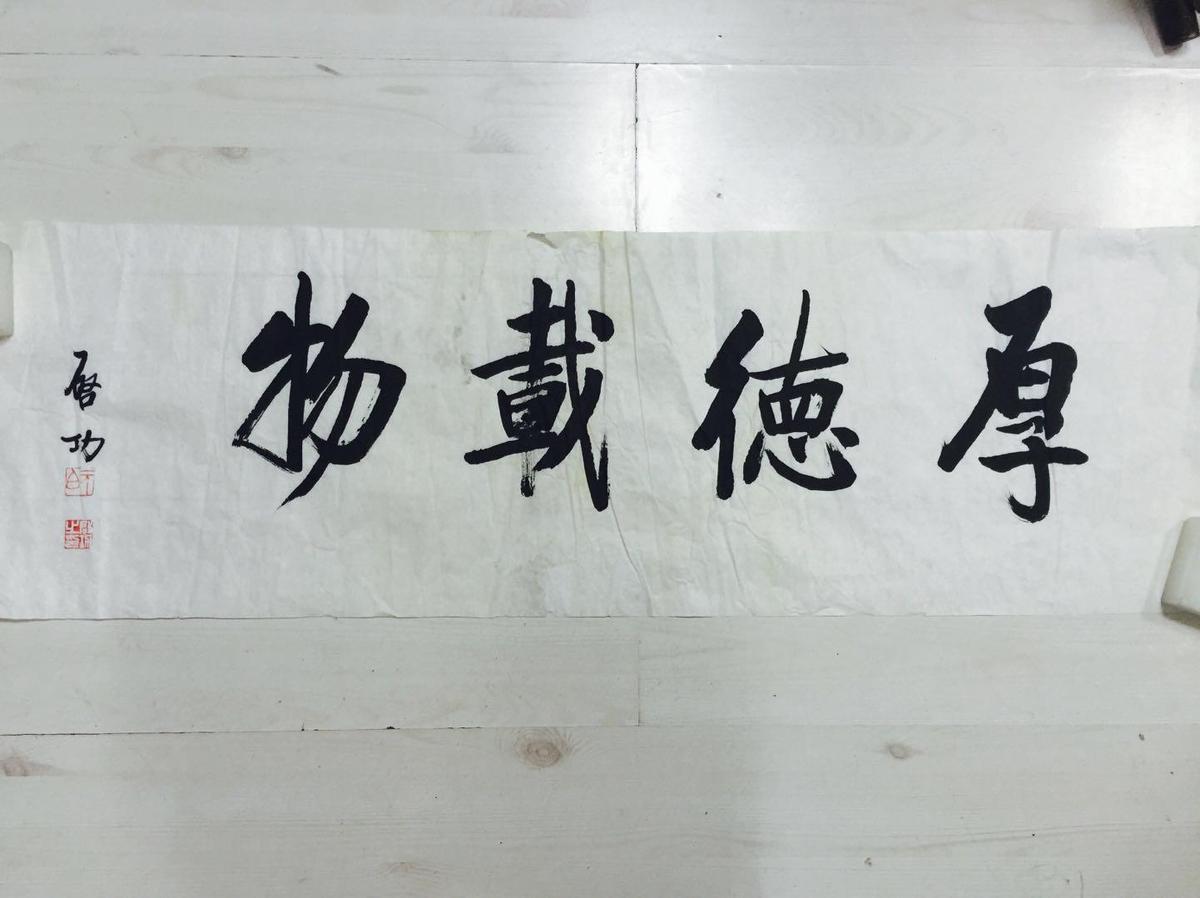 厚德載物
啓功